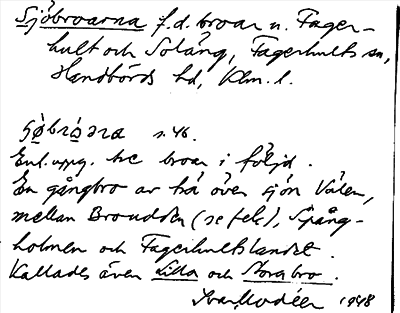 Sjöbroarna f.d. broar n. Fager-
hult och Soläng, Fagerhults sn,
Handbörds hd, Klm. l.
sɷ̀brɷ̀ana s. 46.
Enl. uppg. tre broar i följd.
En gångbro av trä över sjön Välen,
mellan Broudden (se feks), Spång-
holmen och Fagerhultslandet.
Kallades även Lilla och Storabro.
Ivar Modéer 1948